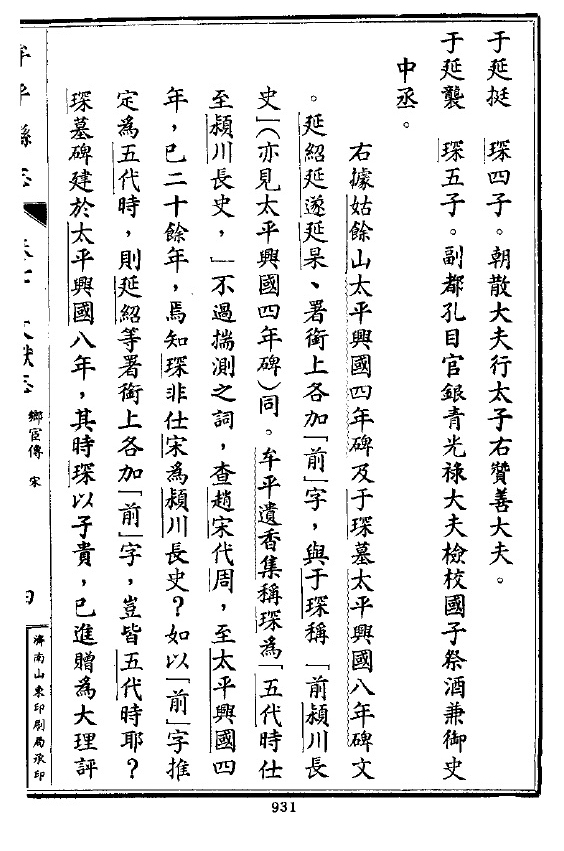 于延挺　琛四子。朝散大夫行太子右贊善大夫。
于延襲　琛五子。副都孔目官銀青光祿大夫檢校國子祭酒兼御史
中丞。
右據姑餘山太平興國四年碑及于琛墓太平興國八年碑文
。延紹延邃延杲、署銜上各加「前」字，與于琛稱「前潁川長
史」（亦見太平興國四年碑）同。牟平遺香集稱琛為「五代時仕
至潁川長史，」不過揣測之詞，查趙宋代周，至太平興國四
年，已二十餘年，焉知琛非仕宋為潁川長史？如以「前」字推
定為五代時，則延紹等署銜上各加「前」字，豈皆五代時耶？
琛墓碑建於太平興國八年，其時琛以子貴，已進贈為大理評
牟平縣志　卷七　文獻志　鄉宦傳　宋
濟南山東印刷局承印
931